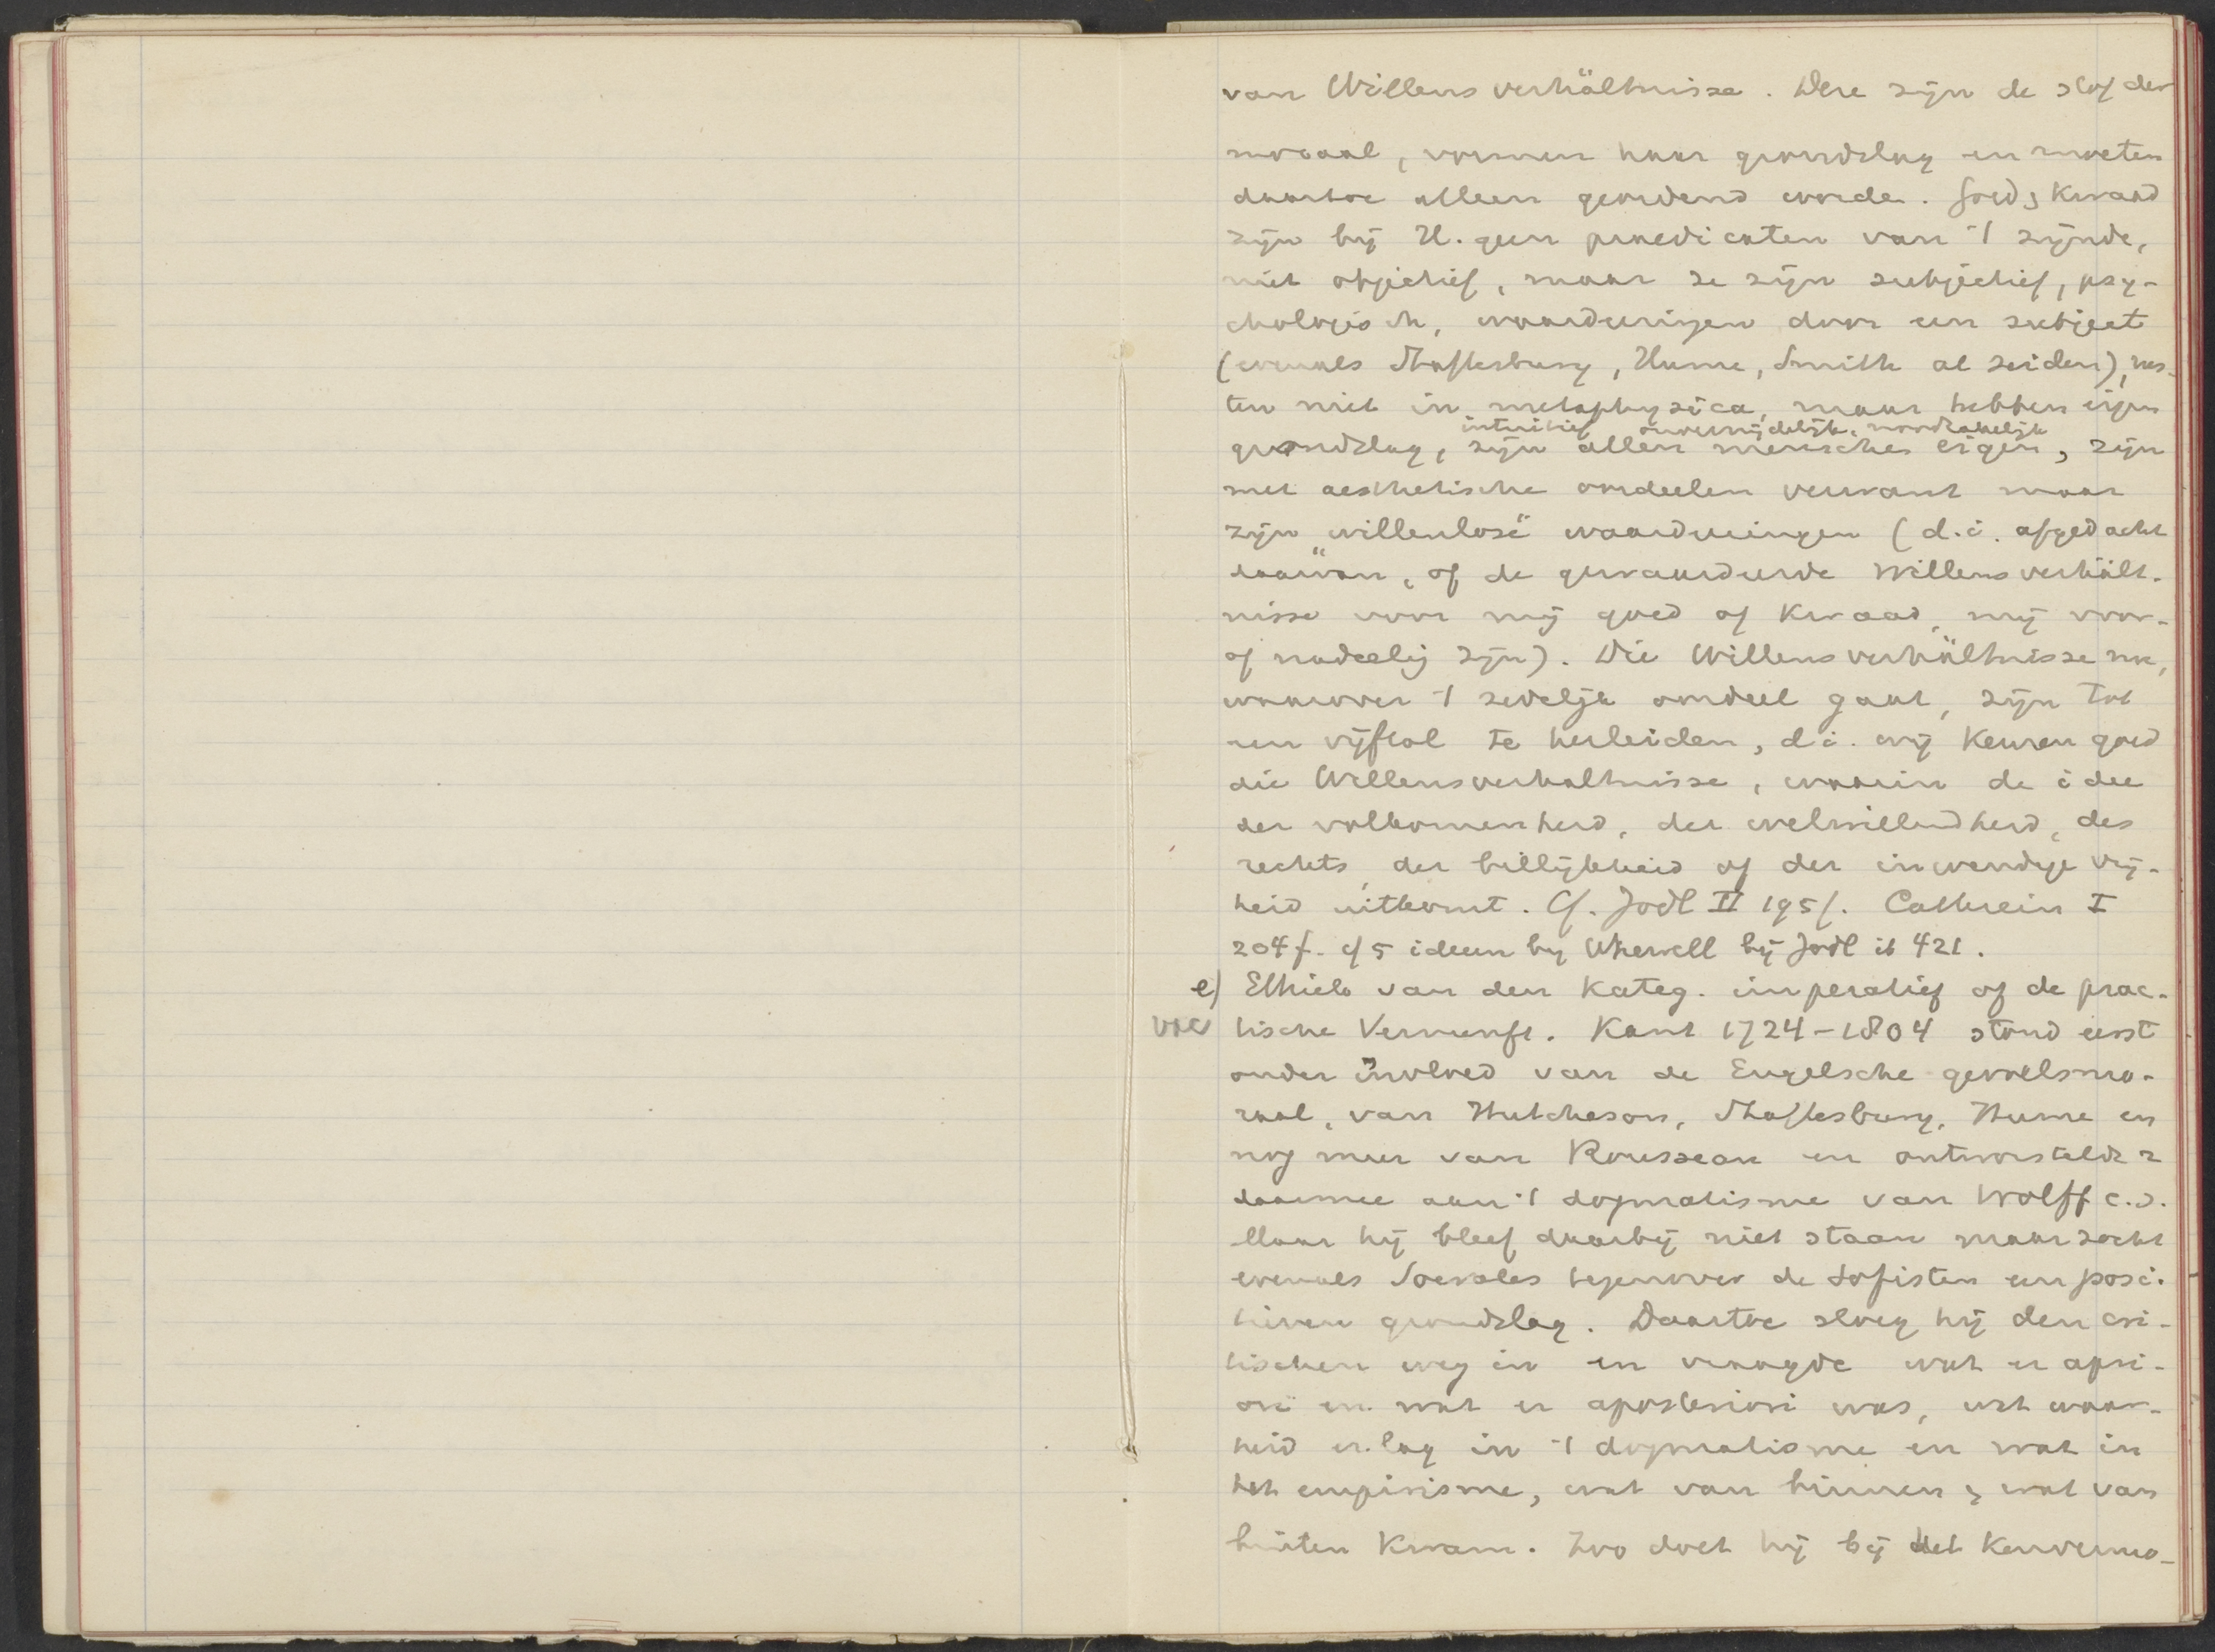 van Willensverhältnisse. Deze zijn de stof der
moraal, vormen haar grondslag en moeten
daartoe alleen geordend worden. Goed & Kwaad
zijn bij H. geen praedicaten van 't zijnde,
niet objectief, maar ze zijn subjectief, psy-
chologisch, waardeeringen door een subject
(evenals Shaftesbury, Hume, Smith al zeiden), rus-
ten niet in metaphysica, maar hebben eigen
intuitief onvermijdelijk, noodzakelijk
grondslag, zijn allen menschen eigen, zijn
met aesthetische oordeelen verwant maar
zijn "willenlose" waardeeringen (d.i. afgedacht
daarvan, of de gewaardeerde Willensverhält-
nisse voor mij goed of kwaad, mij voor-
of nadeelig zijn). Die Willensverhältnisse nu,
waarover 't zedelijk oordeel gaat, zijn tot
een vijftal te herleiden, d.i. wij keuren goed
die Willensverhaltnisse, waarin de idee
der volkomenheid, der welwillendheid, des
rechts, der billijkheid of der inwendige vrij-
heid uitkomt. Cf. Jodl II 195f. Cathrein I
204f. cf 5 ideen by Whewell bij Jodl ib 421.
e) Ethiek van den Kateg. imperatief of de prac-
tische Vernunft. Kant 1724-1804 stond eerst
onder invloed van de Engelsche gevoelsmo-
raal, van Hutcheson, Shaftesbury, Hume en
nog meer van Rousseau en ontworstelde z
daarmee aan 't dogmatisme van Wolff c.s.
Maar hij bleef daarbij niet staan maar zocht
evenals Socrates tegenover de Sofisten een posi-
tieven grondslag. Daartoe sloeg hij den cri-
tischen weg in en vraagde wat er apri-
ori en wat er aposteriori was, wat waar-
heid er lag in 't dogmatisme en wat in
het empirisme, wat van binnen & wat van
buiten kwam. Zoo doet hij bij het Kenvermo-